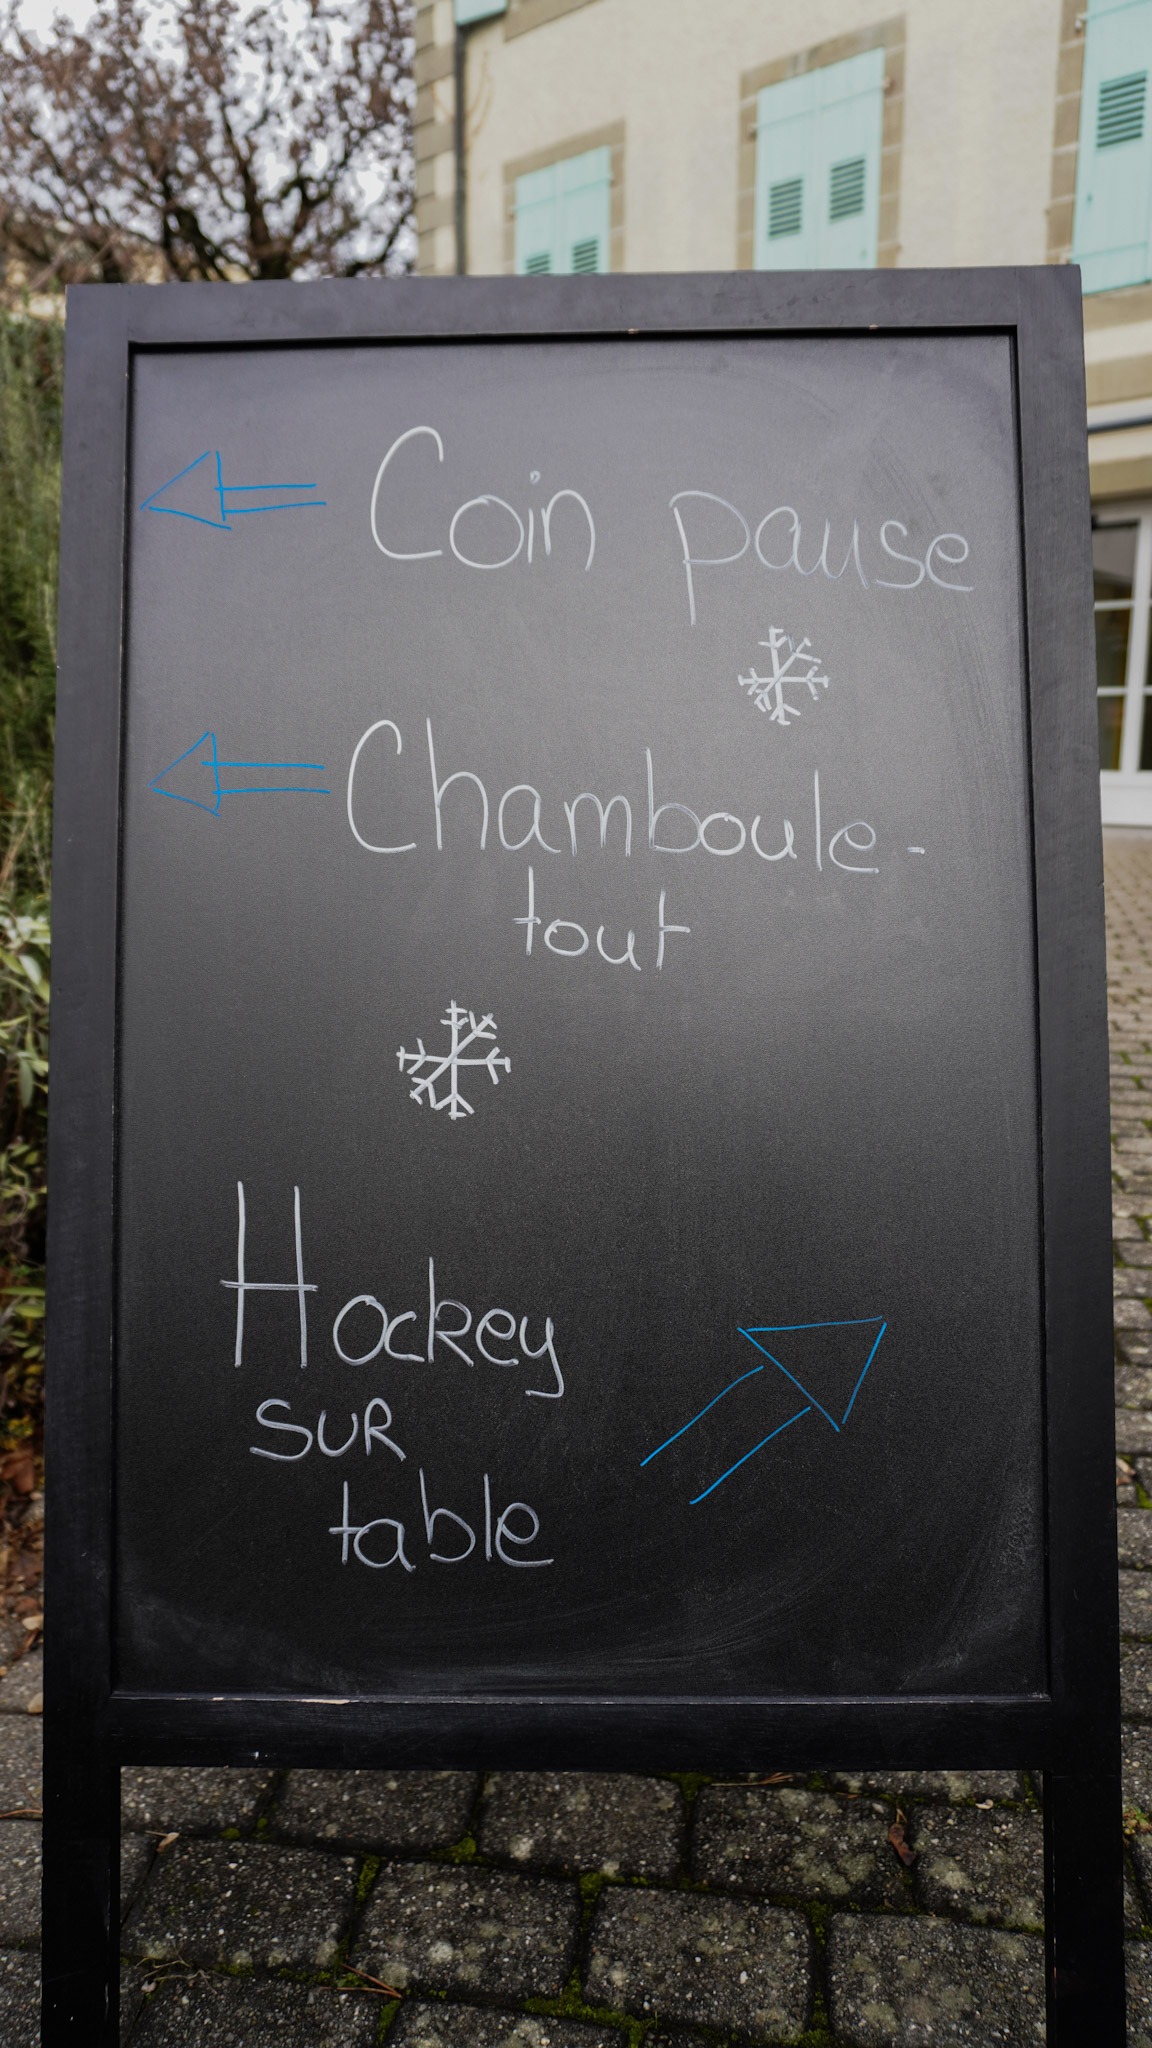 Coin pause
Chamboule-
tout
Hockey
sur
table